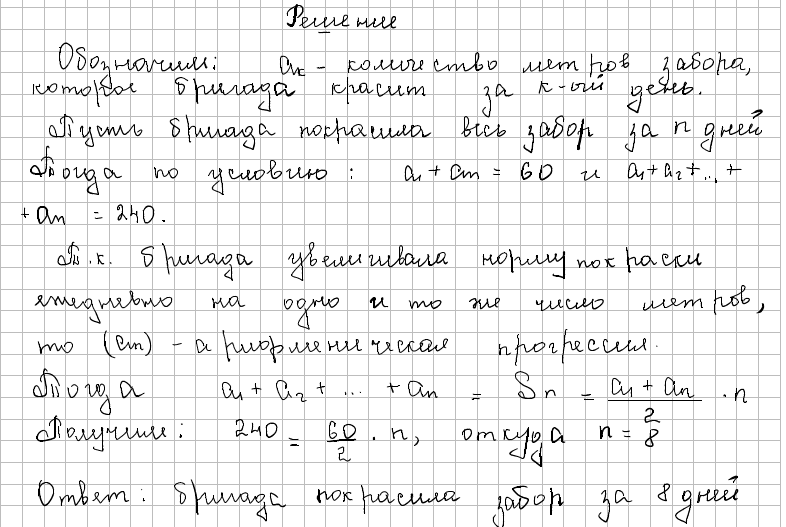 Решение
Обозначим: aₖ - количество метров забора,
которое бригада красит за к-ый день.
Пусть бригада покрасила весь забор за n дней
Тогда по условию: a₁ + aₙ = 60 и a₁+a₂+...+
+ aₙ = 240.
Т.к. бригада увеличивала норму покраски
ежедневно на одно и то же число метров,
то (aₙ) - арифметическая прогрессия.
Тогда a₁ + a₂ + ... + aₙ = Sₙ = (a₁ + aₙ)/2 · n
Получим: 240 = 60/2 · n, откуда n = 8
Ответ: бригада покрасила забор за 8 дней